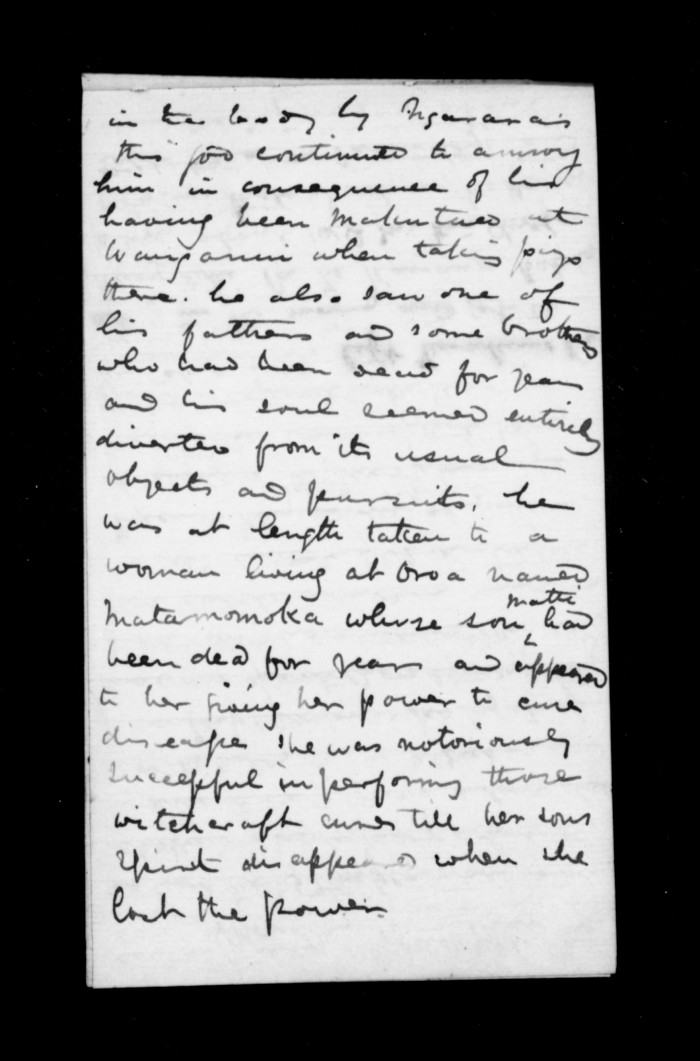 in the body by Ngarara is
this god continued to annoy
him in consequence of his
having been makutued at
Wanganui when taking pigs
there. he also saw one of
his fathers and some brothers
who had been dead for years
and his soul seemed entirely
diverted from its usual
objects and pursuits. he
was at length taken to a
woman living at Oroa named
Matamomoka whose son matti had
been dead for years and appeared
to her giving her power to cure
disease she was notoriously
successful in performing those
witchcraft cures till her sons
spirit disappeared when she
lost the power